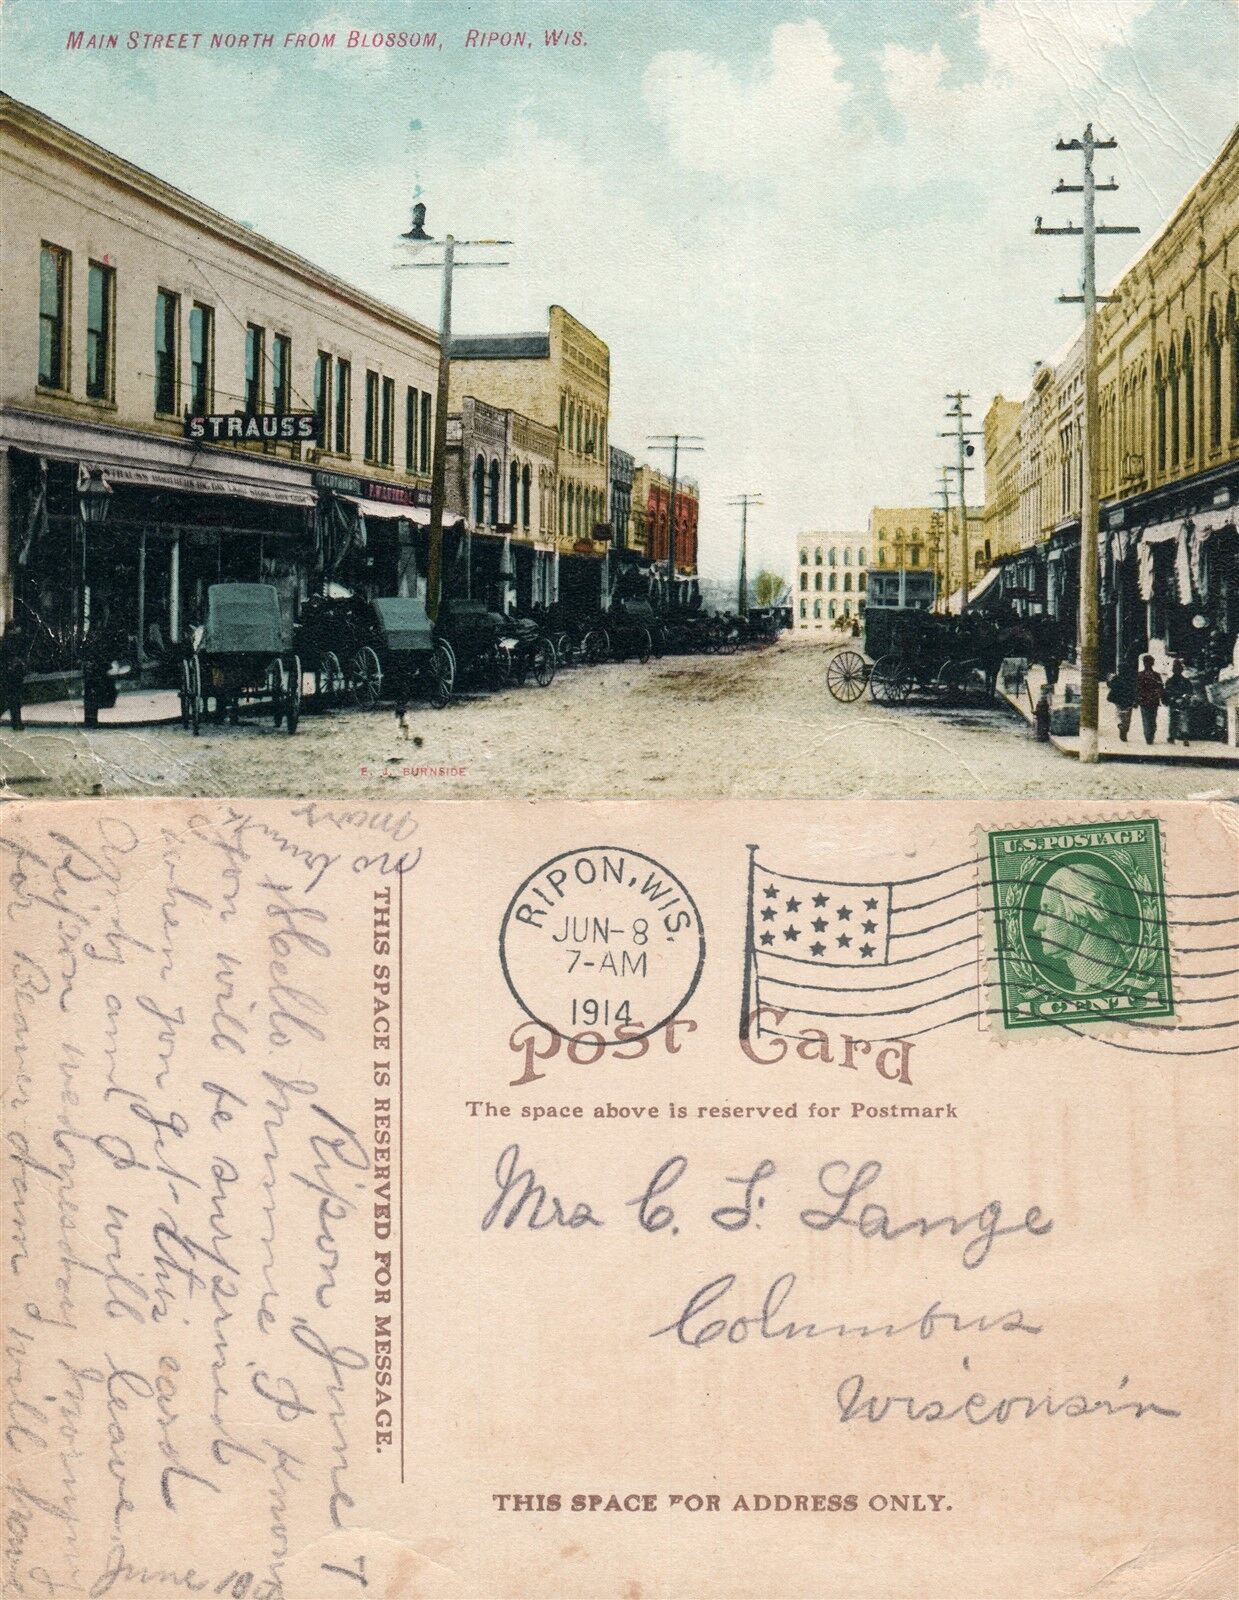 MAIN STREET NORTH FROM BLOSSOM, RIPON, WIS.
STRAUSS
CLOTHING
E. J. BURNSIDE
RIPON, WIS.
JUN-8
7-AM
1914
U.S. POSTAGE
1 CENT 1
Post Card
The space above is reserved for Postmark
Mrs C. F. Lange
Columbus
Wisconsin
THIS SPACE FOR ADDRESS ONLY.
THIS SPACE IS RESERVED FOR MESSAGE.
Ripon June 7
Hello Minnie I know
you will be surprised
when you get this card
and I will leave
Ripon wednesday morning
for Beaver dam I will
June 10
no
more